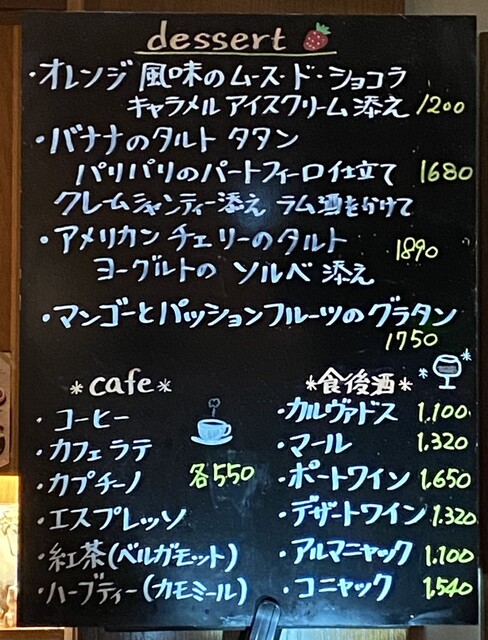 dessert
・オレンジ風味のムース・ド・ショコラ
キャラメルアイスクリーム添え 1200
・バナナのタルト タタン
パリパリのパートフィーロ仕立て 1680
クレームシャンティー添え ラム酒をかけて
・アメリカン チェリーのタルト 1890
ヨーグルトの ソルベ 添え
・マンゴーとパッションフルーツのグラタン
1750
*cafe*
・コーヒー
・カフェ ラテ
・カプチーノ 各550
・エスプレッソ
・紅茶(ベルガモット)
・ハーブティー(カモミール)
*食後酒*
・カルヴァドス 1,100
・マール 1,320
・ポートワイン 1,650
・デザートワイン 1,320
・アルマニャック 1,100
・コニャック 1,540